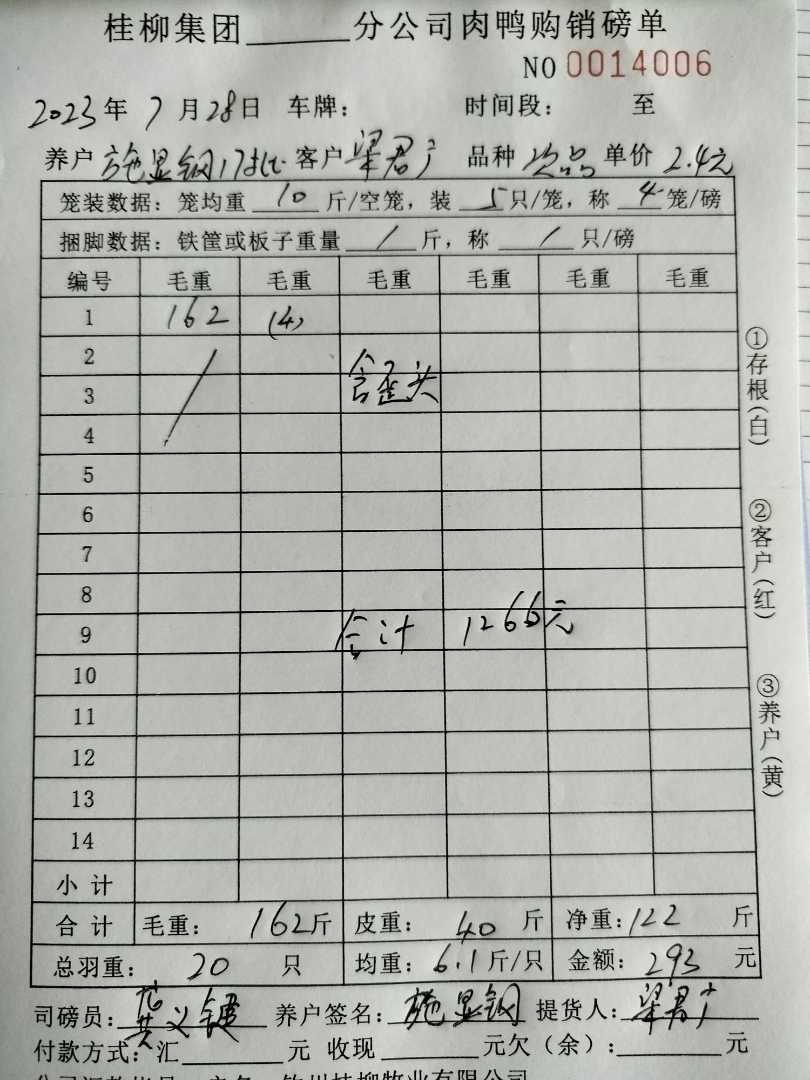 桂柳集团______分公司肉鸭购销磅单
NO 0014006
2023年 7月28日 车牌: 时间段: 至
养户 施显钢17批 客户 梁君广 品种 次品 单价 2.4元
笼装数据: 笼均重 10 斤/空笼, 装 5 只/笼, 称 4 笼/磅
捆脚数据: 铁筐或板子重量 / 斤, 称 / 只/磅
编号 毛重 毛重 毛重 毛重 毛重 毛重
1 162 (4)
2
3 含歪头
4
5
6
7
8
9 合计 1266元
10
11
12
13
14
小计
合计 毛重: 162斤 皮重: 40 斤 净重: 122 斤
总羽重: 20 只 均重: 6.1 斤/只 金额: 293 元
司磅员: 义键 养户签名: 施显钢 提货人: 梁君广
付款方式: 汇______元 收现______元欠(余):______元
①存根(白)
②客户(红)
③养户(黄)